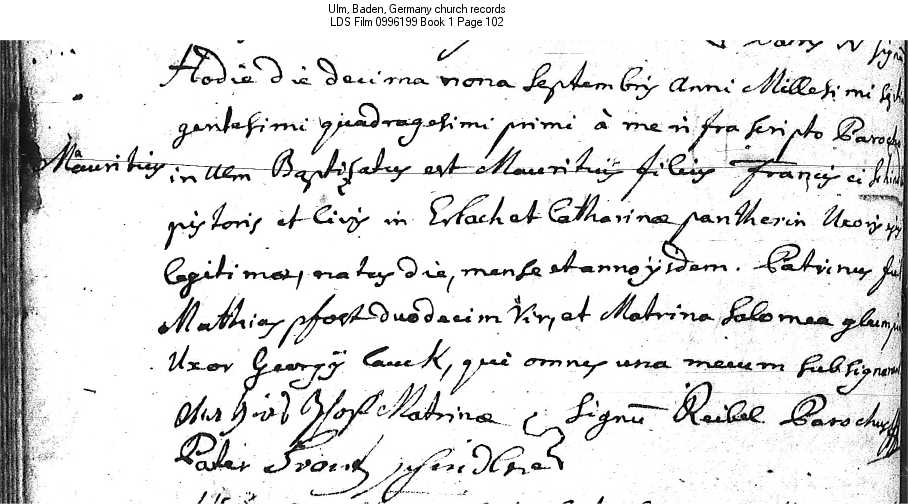 Ulm, Baden, Germany church records
LDS Film 0996199 Book 1 Page 102
Hodie die decima nona Septembris Anni Millesimi
gentesimi quadragesimi primi à me infra scripto Paroch
Mauritius
in Ulm Baptizatus est Mauritius filius Francisci
pistoris et Civis in Erlach et Catharinæ pantherin Uxoris
legitimæ, natus die, mense et anno ijsdem. Patrinus
Matthias pfost duodecim vir, et Matrina Salomea
Uxor Georgij Cauck, qui omnes una mecum subsignarunt
Matrinæ Signū Reibel Parochus
Pater